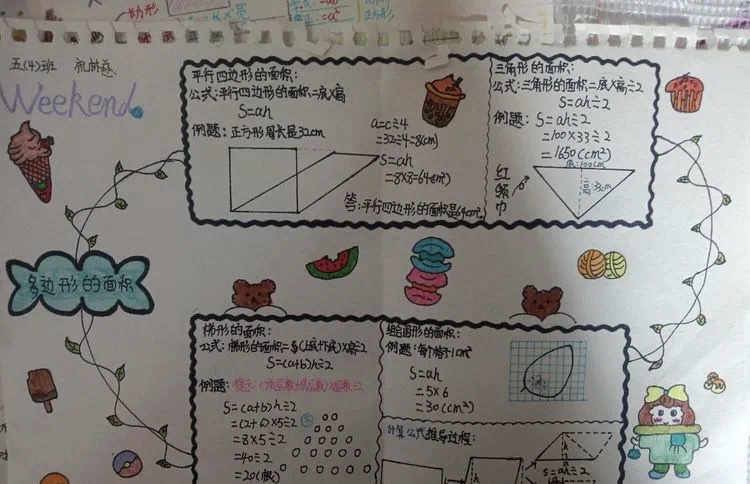 五(4)班
Weekend
多边形的面积
平行四边形的面积:
公式:平行四边形的面积=底×高
S=ah
例题:正方形周长是32cm
a=c÷4
=32÷4=8(cm)
S=ah
=8×8=64(cm²)
答:平行四边形的面积是64cm².
三角形的面积:
公式:三角形的面积=底×高÷2
S=ah÷2
例题:S=ah÷2
=100×33÷2
=1650(cm²)
红领巾
底:100cm
高:33cm
梯形的面积:
公式:梯形的面积=(上底+下底)×高÷2
S=(a+b)h÷2
例题:提示:(顶层数+底层数)×层数÷2
S=(a+b)h÷2
=(2+6)×5÷2
=8×5÷2
=40÷2
=20(根)
组合图形的面积:
例题:每个格子1cm²
S=ah
=5×6
=30(cm²)
计算公式推导过程:
h
a
S=ah÷2